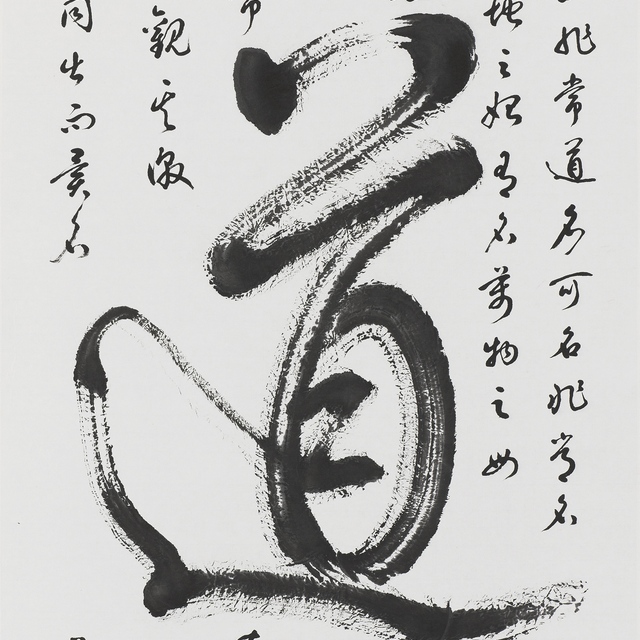 非常道名可名非常名
地之始有名萬物之母
道
觀其徼
同出而異名